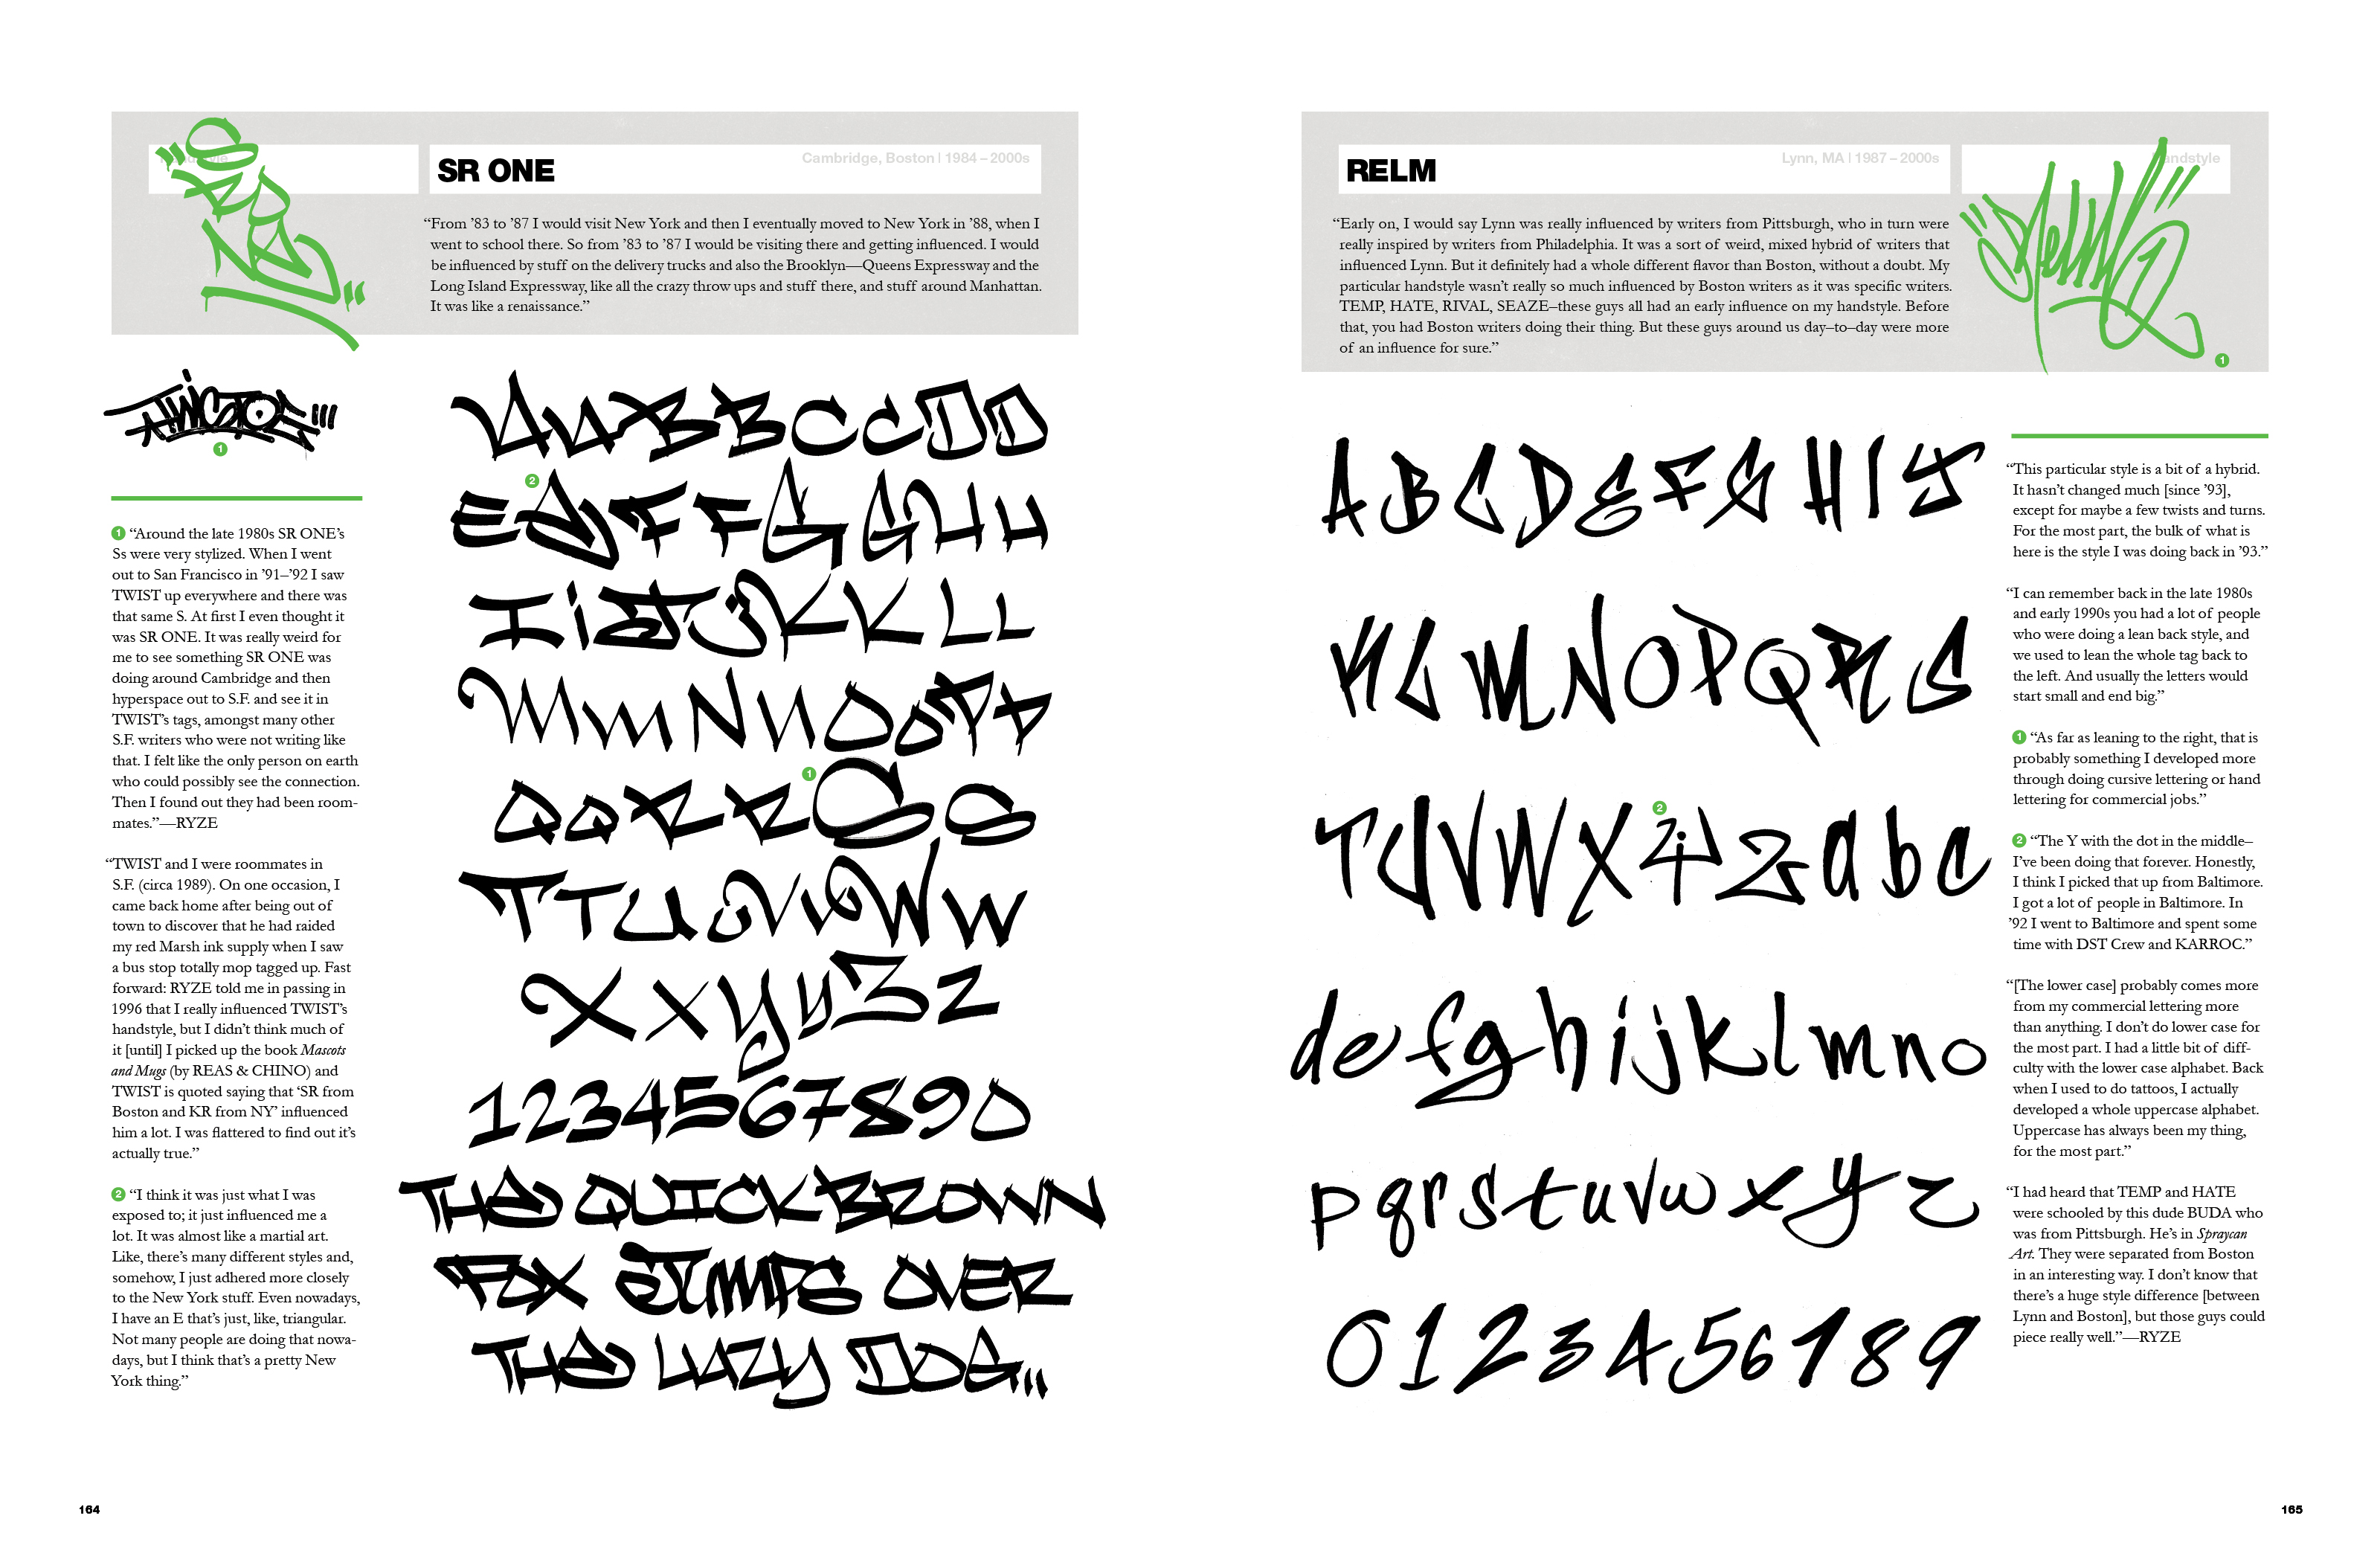 Handstyle
SR ONE
Cambridge, Boston | 1984 – 2000s
“From ’83 to ’87 I would visit New York and then I eventually moved to New York in ’88, when I
went to school there. So from ’83 to ’87 I would be visiting there and getting influenced. I would
be influenced by stuff on the delivery trucks and also the Brooklyn—Queens Expressway and the
Long Island Expressway, like all the crazy throw ups and stuff there, and stuff around Manhattan.
It was like a renaissance.”
1
1 “Around the late 1980s SR ONE’s
Ss were very stylized. When I went
out to San Francisco in ’91–’92 I saw
TWIST up everywhere and there was
that same S. At first I even thought it
was SR ONE. It was really weird for
me to see something SR ONE was
doing around Cambridge and then
hyperspace out to S.F. and see it in
TWIST’s tags, amongst many other
S.F. writers who were not writing like
that. I felt like the only person on earth
who could possibly see the connection.
Then I found out they had been room-
mates.”—RYZE
“TWIST and I were roommates in
S.F. (circa 1989). On one occasion, I
came back home after being out of
town to discover that he had raided
my red Marsh ink supply when I saw
a bus stop totally mop tagged up. Fast
forward: RYZE told me in passing in
1996 that I really influenced TWIST’s
handstyle, but I didn’t think much of
it [until] I picked up the book Mascots
and Mugs (by REAS & CHINO) and
TWIST is quoted saying that ‘SR from
Boston and KR from NY’ influenced
him a lot. I was flattered to find out it’s
actually true.”
2 “I think it was just what I was
exposed to; it just influenced me a
lot. It was almost like a martial art.
Like, there’s many different styles and,
somehow, I just adhered more closely
to the New York stuff. Even nowadays,
I have an E that’s just, like, triangular.
Not many people are doing that nowa-
days, but I think that’s a pretty New
York thing.”
A A B B C C D D
2
E E F F G G H H
I i J j K K L L
M m N N O O P P
1
Q Q R R S S
T T U U V V W W
X X Y y Z Z
1 2 3 4 5 6 7 8 9 0
THE QUICK BROWN
FOX JUMPS OVER
THE LAZY DOG...
164
RELM
Lynn, MA | 1987 – 2000s
Handstyle
“Early on, I would say Lynn was really influenced by writers from Pittsburgh, who in turn were
really inspired by writers from Philadelphia. It was a sort of weird, mixed hybrid of writers that
influenced Lynn. But it definitely had a whole different flavor than Boston, without a doubt. My
particular handstyle wasn’t really so much influenced by Boston writers as it was specific writers.
TEMP, HATE, RIVAL, SEAZE–these guys all had an early influence on my handstyle. Before
that, you had Boston writers doing their thing. But these guys around us day–to–day were more
of an influence for sure.”
1
A B C D E F G H I J
K L M N O P Q R S
2
T U V W X Y Z a b c
d e f g h i j k l m n o
p q r s t u v w x y z
0 1 2 3 4 5 6 7 8 9
“This particular style is a bit of a hybrid.
It hasn’t changed much [since ’93],
except for maybe a few twists and turns.
For the most part, the bulk of what is
here is the style I was doing back in ’93.”
“I can remember back in the late 1980s
and early 1990s you had a lot of people
who were doing a lean back style, and
we used to lean the whole tag back to
the left. And usually the letters would
start small and end big.”
1 “As far as leaning to the right, that is
probably something I developed more
through doing cursive lettering or hand
lettering for commercial jobs.”
2 “The Y with the dot in the middle–
I’ve been doing that forever. Honestly,
I think I picked that up from Baltimore.
I got a lot of people in Baltimore. In
’92 I went to Baltimore and spent some
time with DST Crew and KARROC.”
“[The lower case] probably comes more
from my commercial lettering more
than anything. I don’t do lower case for
the most part. I had a little bit of diff-
culty with the lower case alphabet. Back
when I used to do tattoos, I actually
developed a whole uppercase alphabet.
Uppercase has always been my thing,
for the most part.”
“I had heard that TEMP and HATE
were schooled by this dude BUDA who
was from Pittsburgh. He’s in Spraycan
Art. They were separated from Boston
in an interesting way. I don’t know that
there’s a huge style difference [between
Lynn and Boston], but those guys could
piece really well.”—RYZE
165